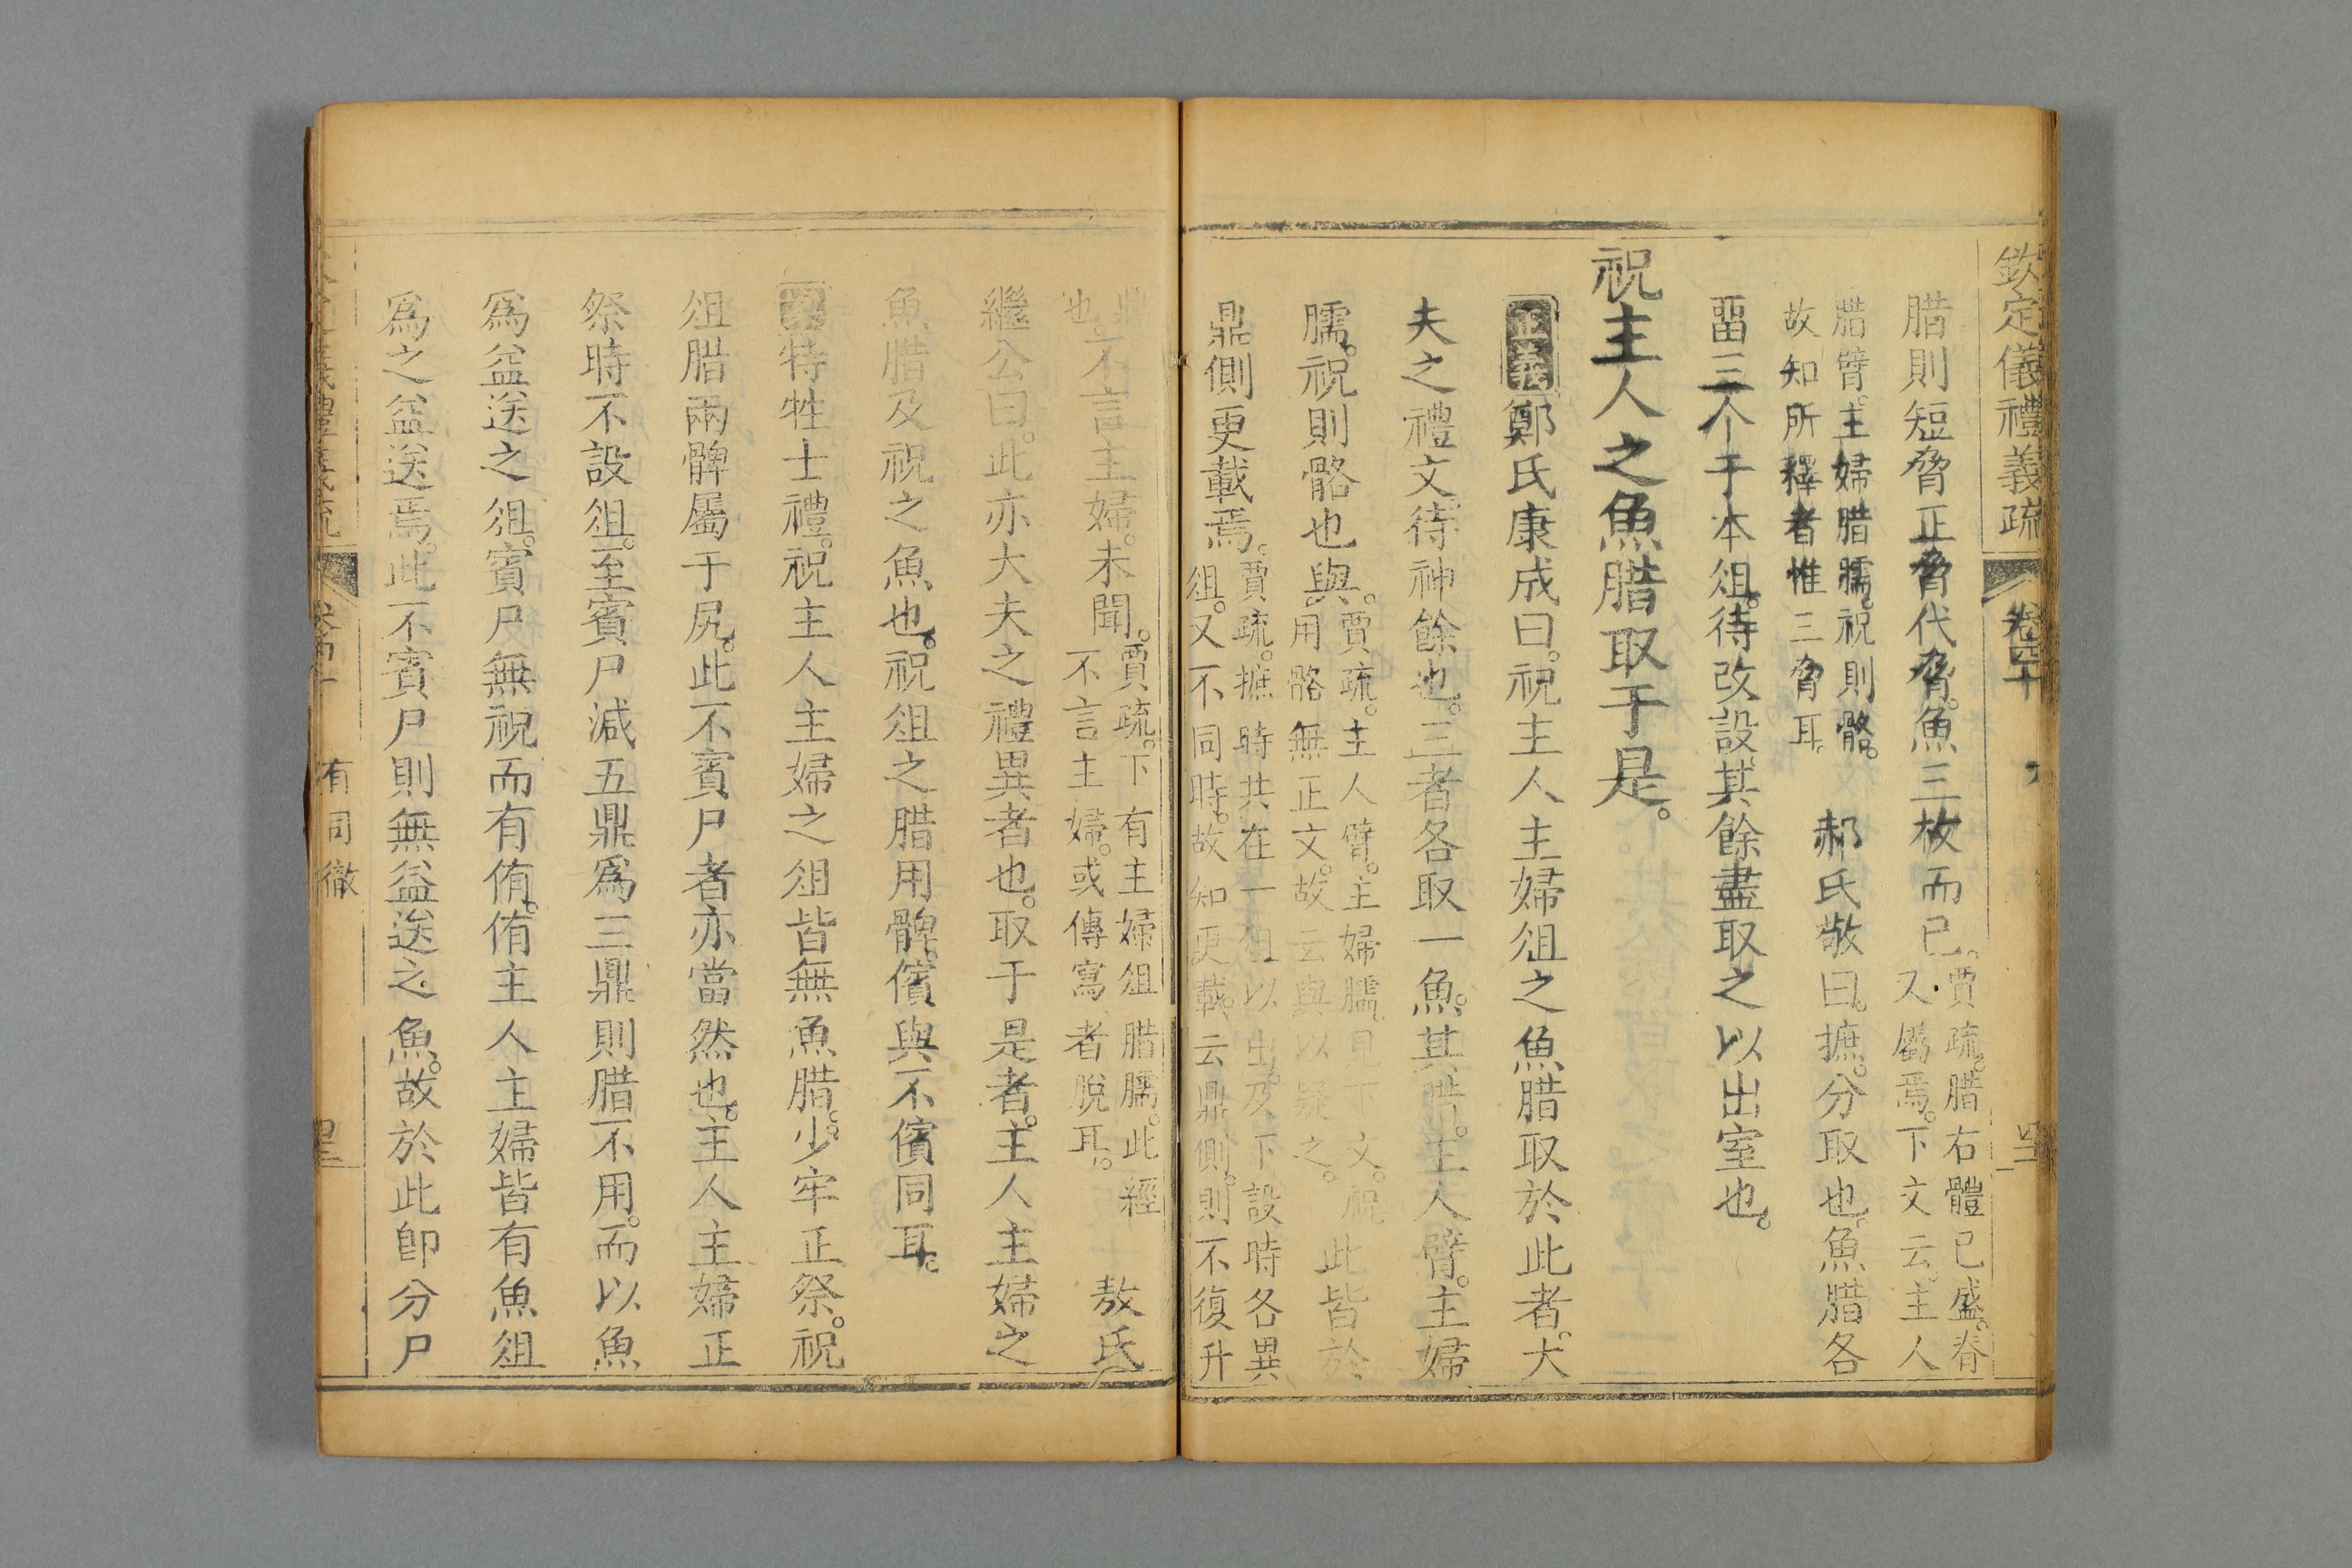 欽定儀禮義疏 卷四十 四十二
腊則短脅正脅代脅。魚三枚而已。賈疏。腊右體已盛。脊
又屬焉。下文云。主人
腊臂。主婦腊臑。祝則骼。
故知所釋者惟三脅耳。
郝氏敬曰。摭。分取也。魚腊各
畱三个于本俎。待改設。其餘盡取之以出室也。
祝主人之魚腊取于是。
正義鄭氏康成曰。祝主人主婦俎之魚腊取於此者。大
夫之禮文。待神餘也。三者各取一魚。其腊。主人臂。主婦
臑。祝則骼也與。賈疏。主人臂。主婦臑。見下文。祝
用骼無正文。故云與以疑之。
此皆於
鼎側更載焉。賈疏。摭時共在一俎以出。及下設時各異
俎。又不同時。故知更載。云鼎側。則不復升
鼎
也。不言主婦。未聞。賈疏。下有主婦俎腊臑。此經
不言主婦。或傳寫者脫耳。
敖氏
繼公曰。此亦大夫之禮異者也。取于是者。主人主婦之
魚腊及祝之魚也。祝俎之腊用髀。儐與不儐同耳。
案特牲士禮。祝主人主婦之俎皆無魚腊。少牢正祭。祝
俎腊兩髀屬于尻。此不賓尸者亦當然也。主人主婦正
祭時不設俎。至賓尸減五鼎爲三鼎則腊不用。而以魚
爲益送之俎。賓尸無祝而有侑。侑主人主婦皆有魚俎
爲之益送焉。此不賓尸則無益送之魚。故於此卽分尸
有司徹